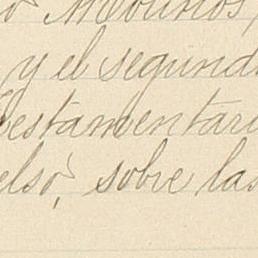 Molinos,
y el segund
testamentari
elso, sobre las